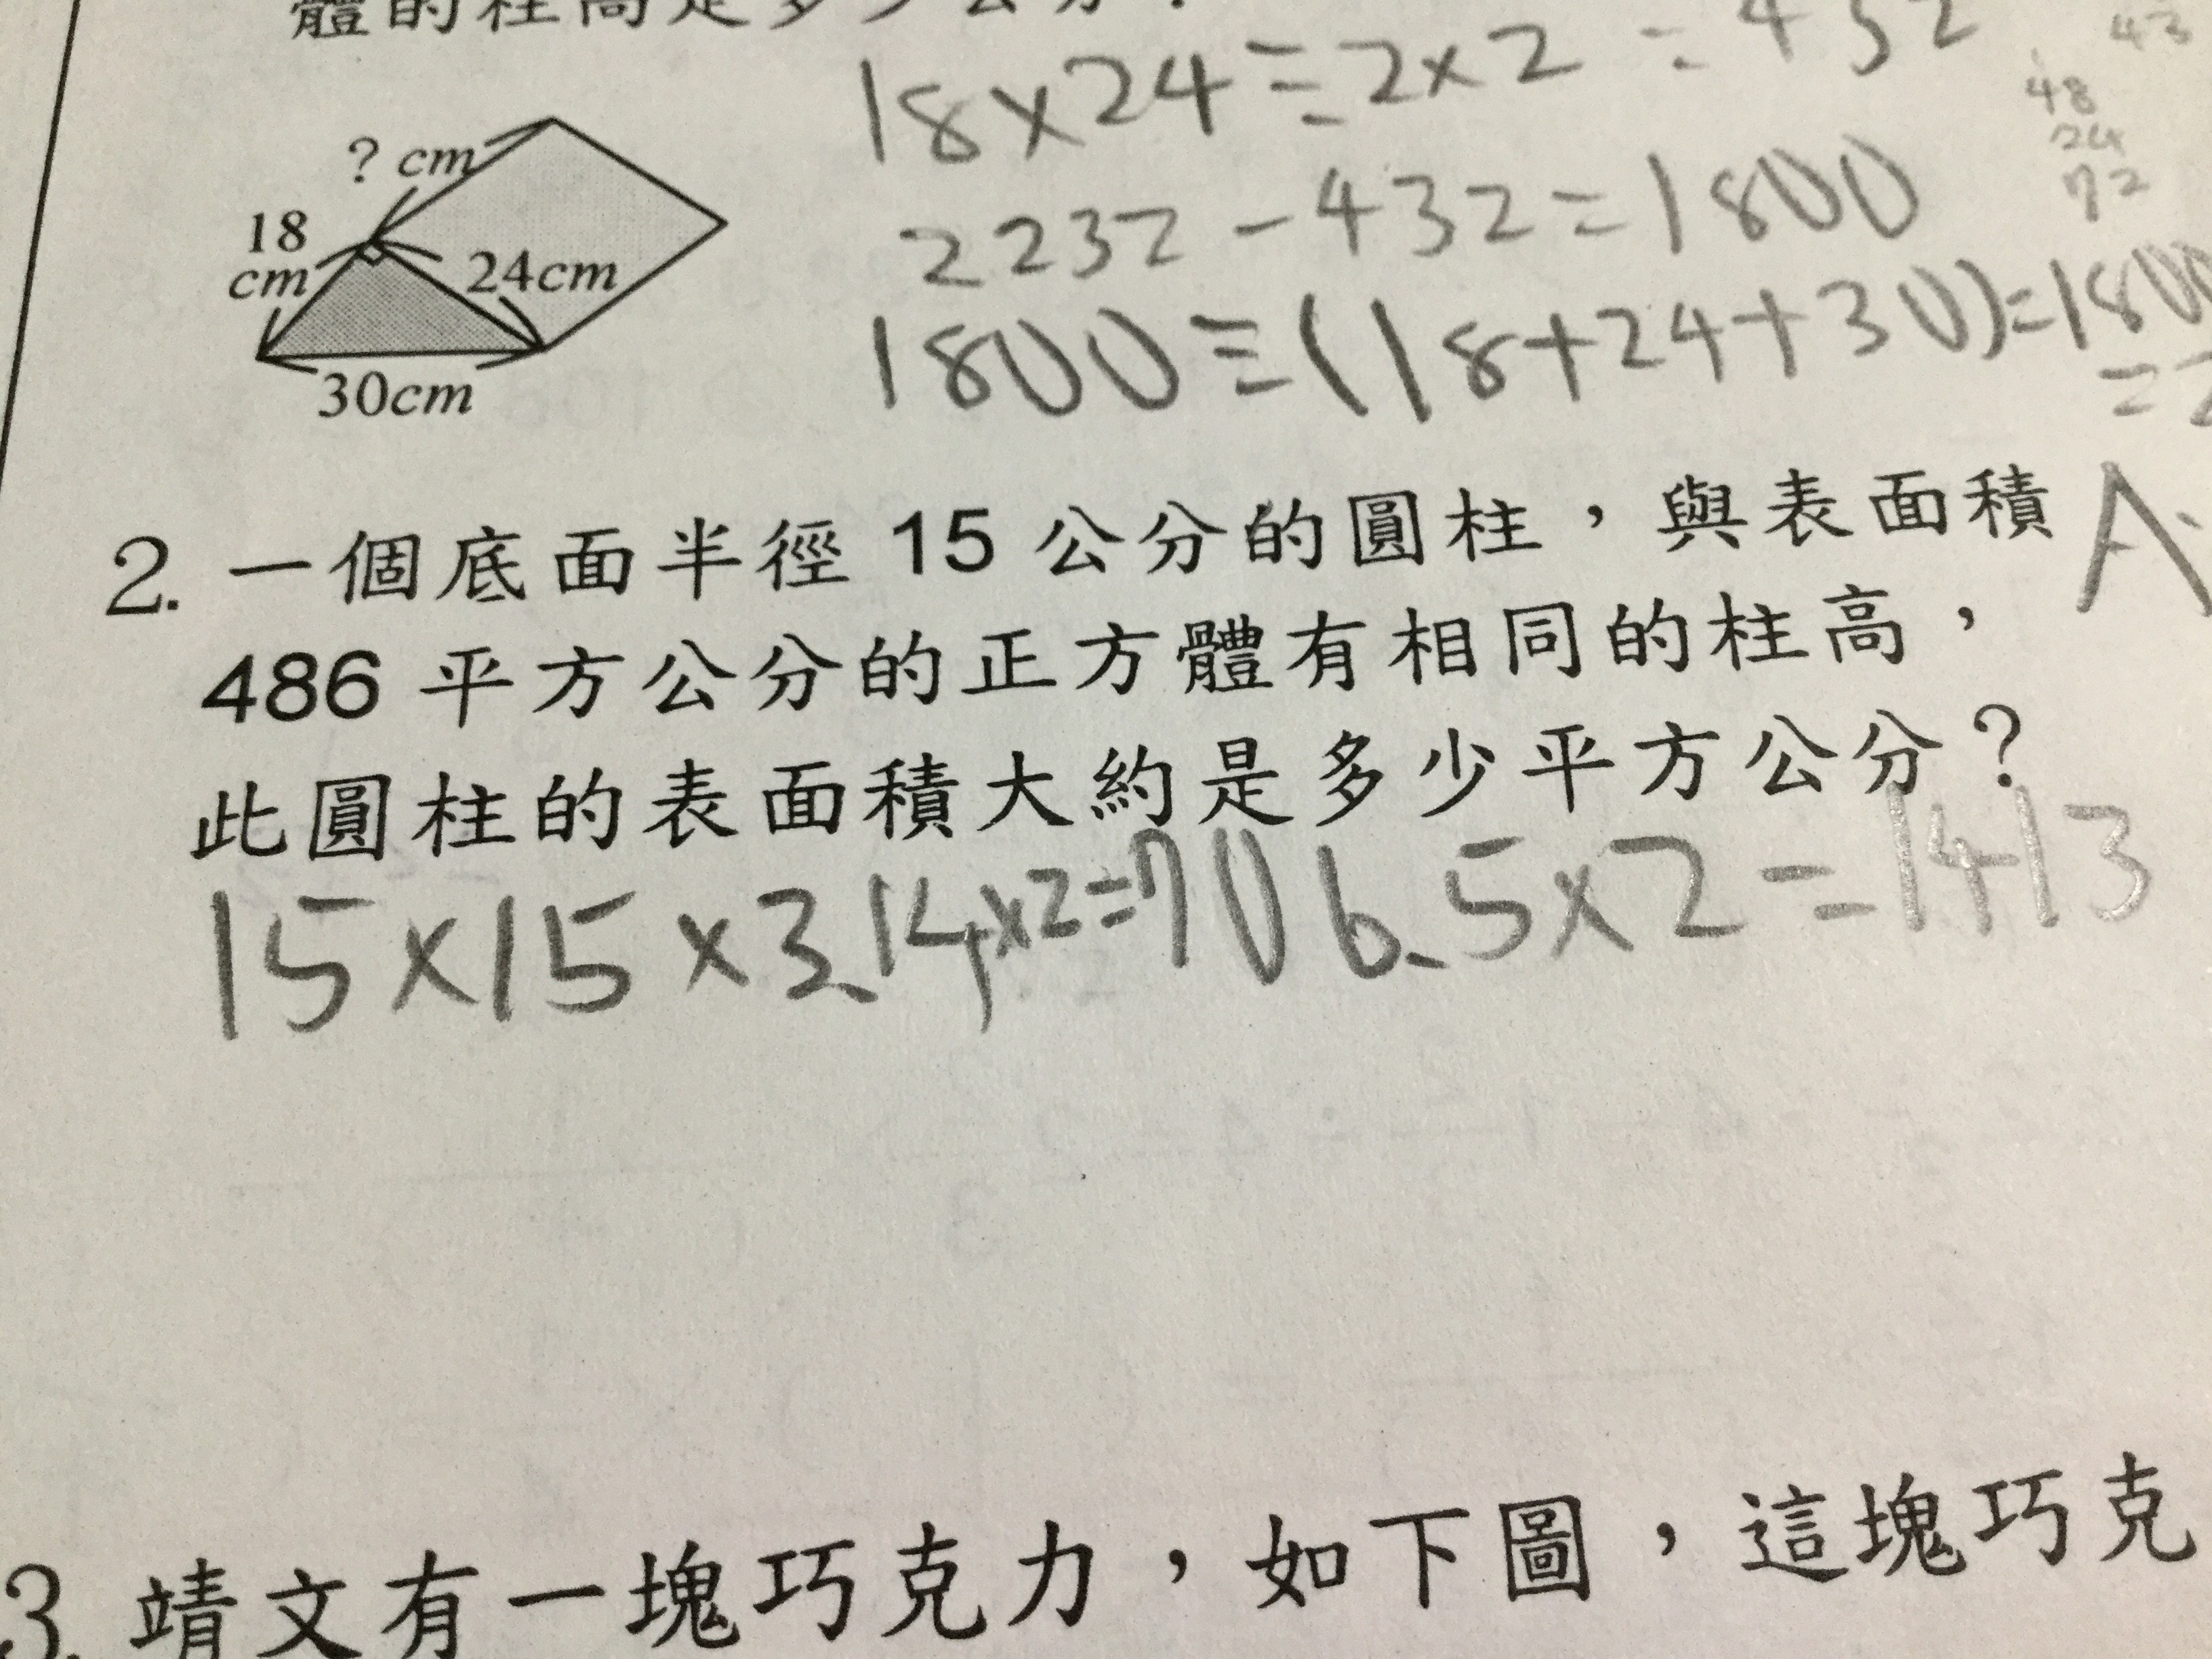 體的柱高是多少公分？
18×24÷2×2=432
43
48
24
72
? cm
18
cm
24cm
30cm
2232-432=1800
1800÷(18+24+30)=1800
=
2. 一個底面半徑 15 公分的圓柱，與表面積
486 平方公分的正方體有相同的柱高，
此圓柱的表面積大約是多少平方公分？
A:
15×15×3.14×2=706.5×2=1413
3. 靖文有一塊巧克力，如下圖，這塊巧克